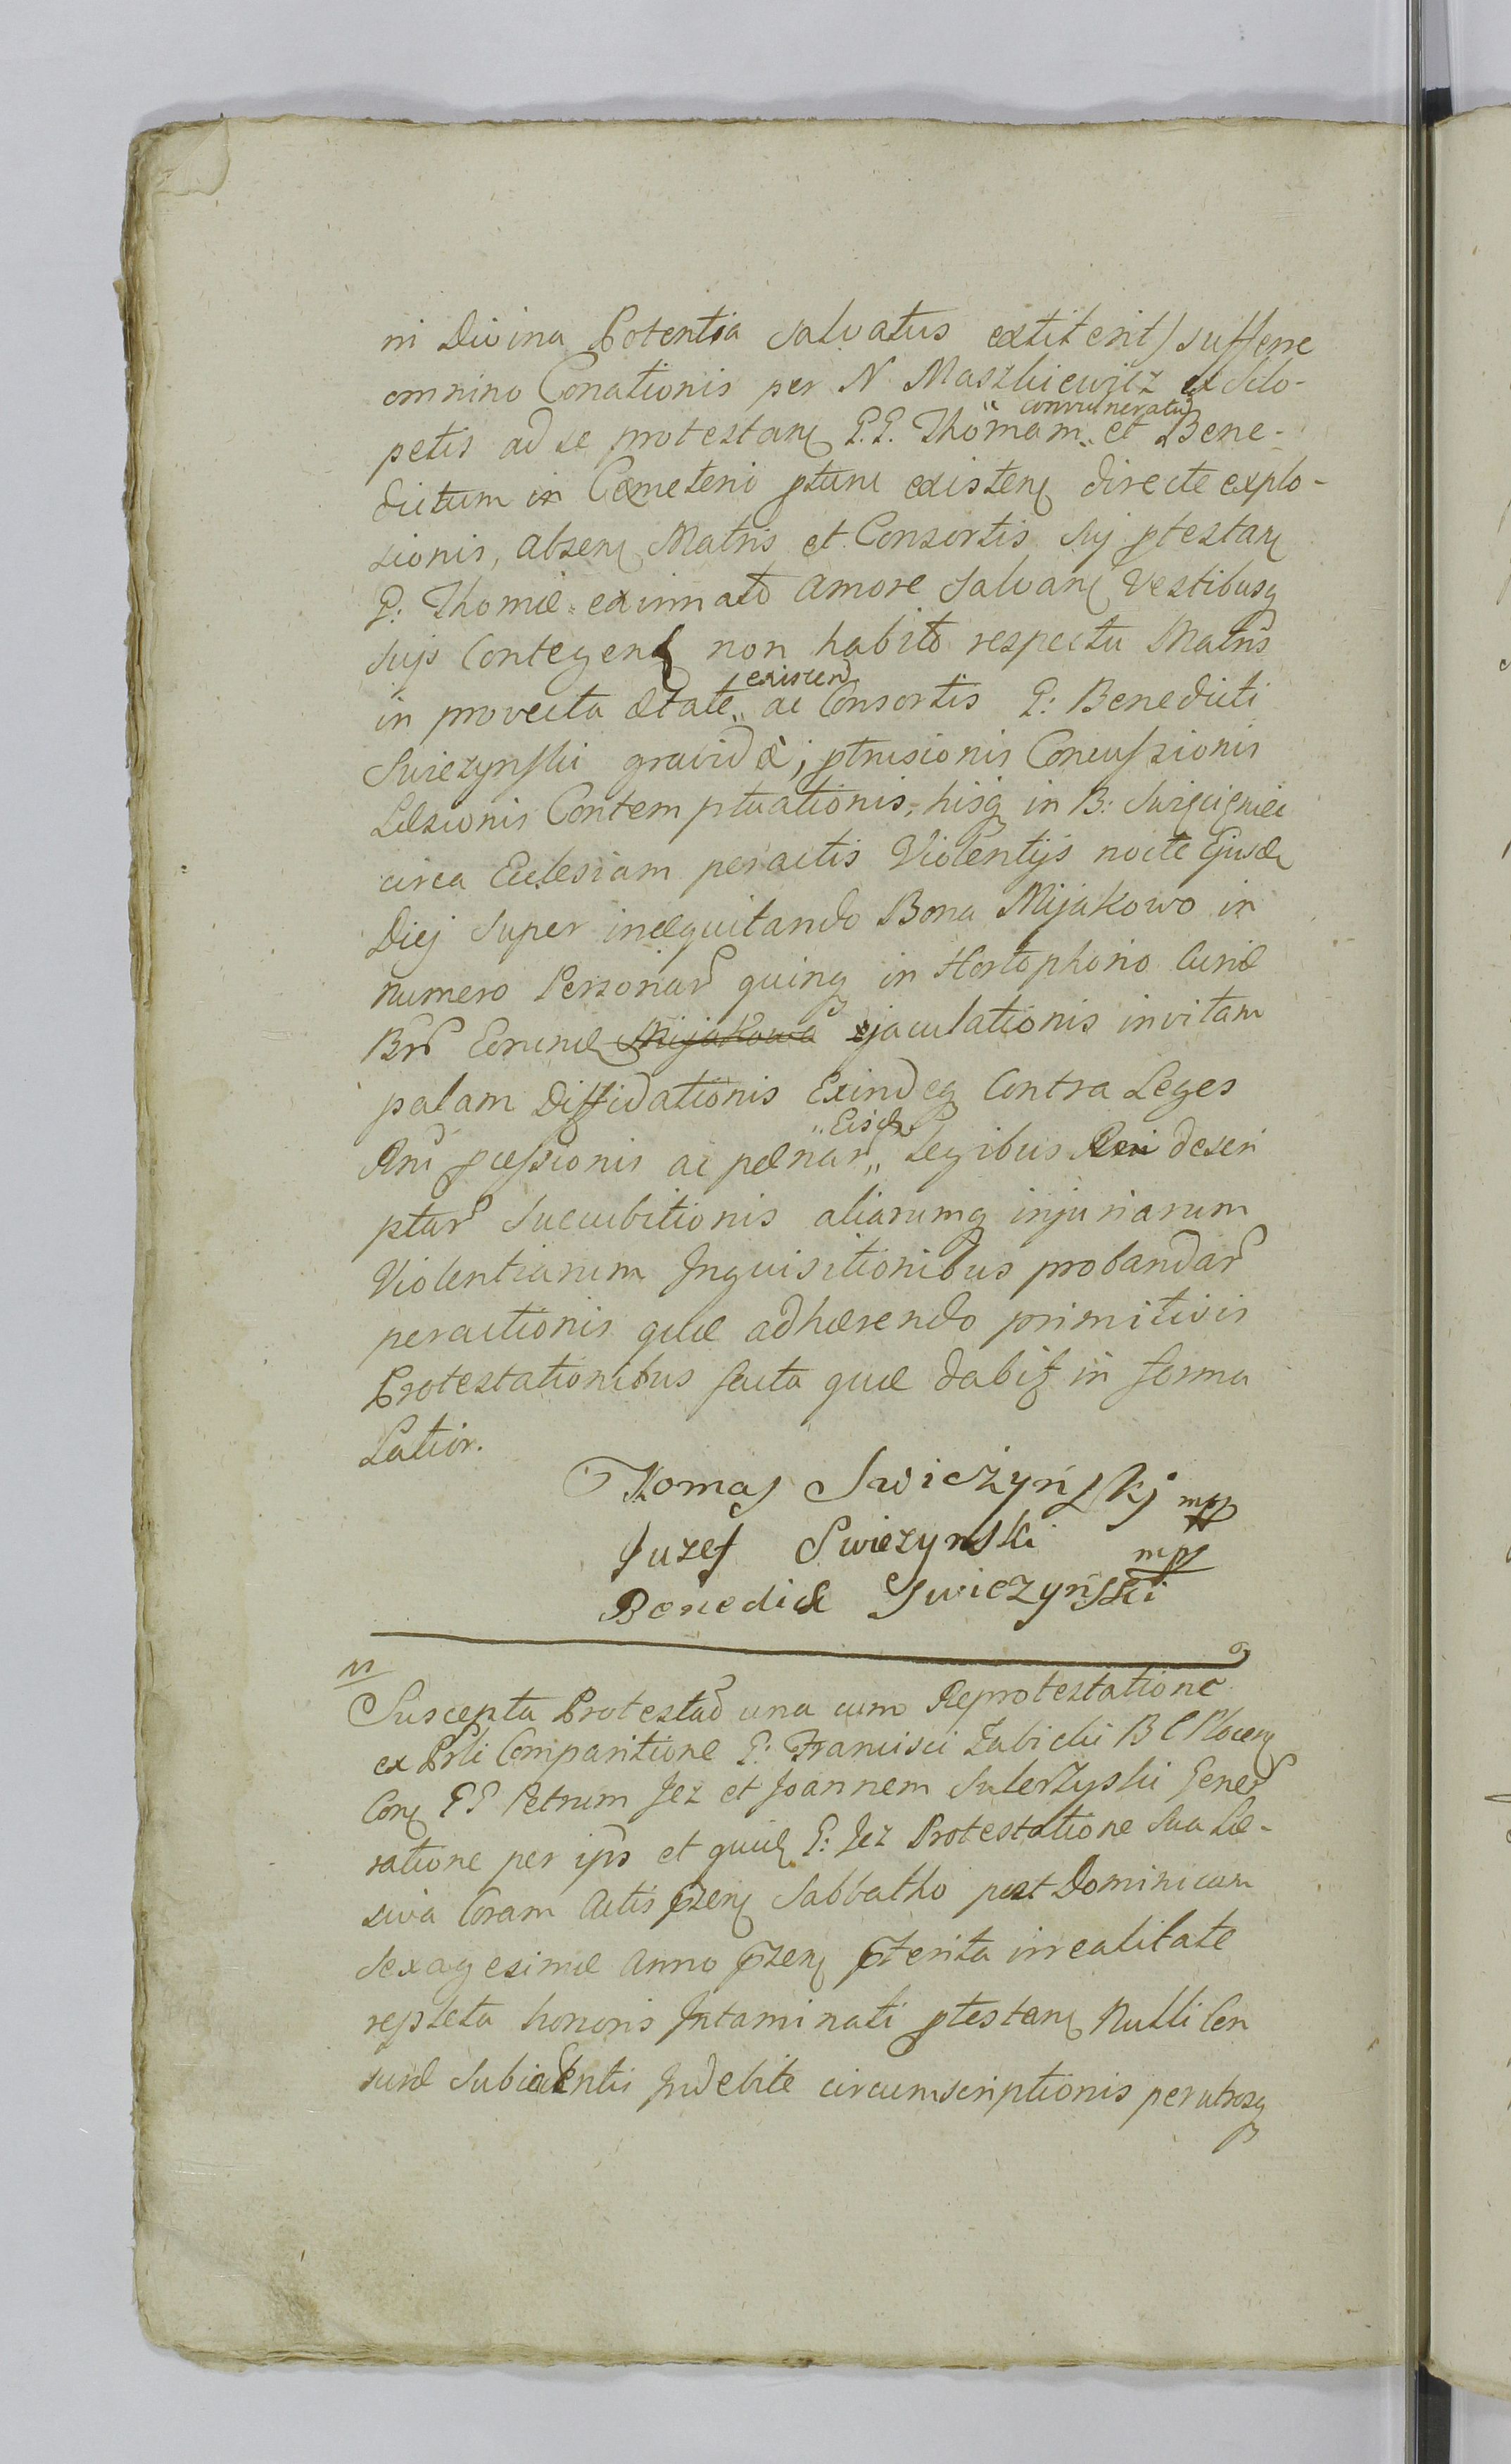 ni Divina Potentia Salvatus extiterit) sufferre
omnino Conationis per N Maszkiewicz ex Sclo-
convulneratū
petis ad se protestanţ P.P. Thomam „ et Bene-
dictum in Cæmeterio ptunc existenţ directe explo-
sionis, absenţ Matris et Consortis Sui ptestanţ
P: Thomæ ex innato amore Salvanţ Vestibusq
Suis Contegenţ non habito respectu Matris
existen
in provecta ætate „ ac Consortis P: Benedicti
Swiezynski gravidæ; ptrusionis Concussionis
Læsionis Contemptuationis, hisq in B:
circa Ecclesiam peractis Violentijs nocte Ejusd
Diej Super inæquitando Bona Mijakowo in
numero Personar quinq in Hortophorio Curiæ
Bnr Eorund Mijakowa ejaculationis invitam
palam Diffidationis Exindeq Contra Leges
„ Eisdm
Rni pcessionis ac pænar „ Legibus Rni descri
ptar Succubitionis aliarumq injuriarum
Violentiarum Inquisitionibus probandar
peractionis quæ adhærendo primitivis
Protestationibus facta quæ dabit in forma
Latior.
Thomas Swiezynskj mpp
Juzef Swiezynski mpp
Benedict Swiezynski
Suscepta Protestao una cum Reprotestatione
ex Prli Comparitione P: Francisci Zabicki B C Plocenţ
Conţ PP Petrum Jez et Joannem Sulerzyski Gener
ratione per ips et quid P: Jez Protestatione Sua Læ-
siva Coram Actis pzenţ Sabbatho post Dominicam
Sexagesimæ Anno pzenţ pterita irrealitate
repleta honoris Intaminati ptestanţ Nulli Cen
suræ Subiacentis Indebite circumscriptionis per utrosq